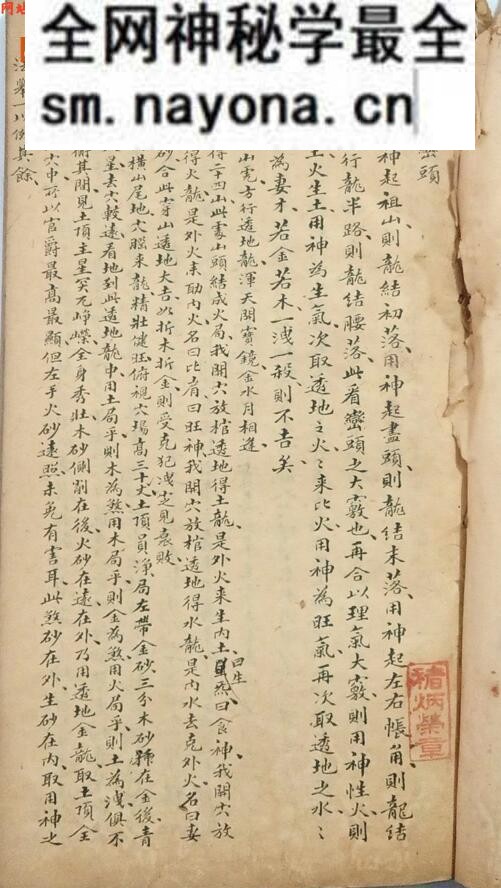 网
全网神秘学最全
sm.nayona.cn
巒頭
神起祖山則龍結初落用神起盡頭則龍結末落用神起左右帳角則龍結
行龍半路則龍結腰落此看巒頭之大竅也再合以理氣大竅則用神性火則
土火生土用神為生氣次取透地之火〻來比火用神為旺氣再次取透地之水〻
為妻才若金若木一洩一殺則不吉矣
山寬方行透地龍渾天開寶鏡金水月相逢
得二十四山此處山頭結成火局我開穴放棺透地得土龍是外火來生內土曰生氣曰食神我開穴放
得火龍是外火來助內火名曰比肩曰旺神我開穴放棺透地得水龍是內水去克外火名曰妻
砂合此穿山透地大吉如折木折金則受克犯洩芝見衰敗
橫山尾地穴腦來龍精壯健旺俯視穴場高三十丈土頂員淨局左帶金砂三分木砂在金後青
星去穴較遠看地到此透地龍中用土局乎則木為煞用木局乎則金為煞用火局乎則土為洩俱不
俯其開見土頂主星突兀崢嶸全身秀壯木砂側割在後火砂在遠在外乃用透地金龍取土頂全
穴中所以官爵最高最顯但左乎火砂遠照未免有害耳此煞砂在外生砂在內取用神之
法舉一以例其餘
褚炳榮章